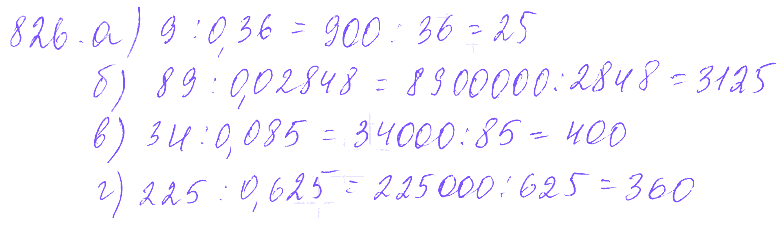 826. а) 9 : 0,36 = 900 : 36 = 25
б) 89 : 0,02848 = 8900000 : 2848 = 3125
в) 34 : 0,085 = 34000 : 85 = 400
г) 225 : 0,625 = 225000 : 625 = 360